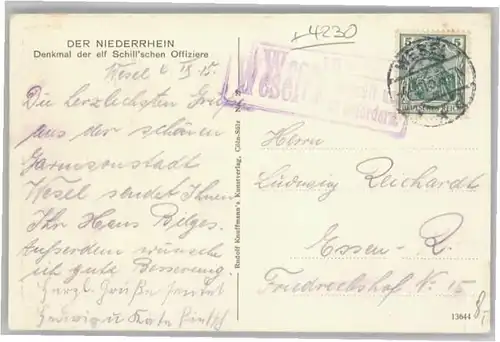 +4230
DER NIEDERRHEIN
Denkmal der elf Schill'schen Offiziere
Wesel 15.
Die herzlichsten Grüße
aus der schönen
Garnisonstadt
Wesel sendet Ihnen
Ihr Hans Bilges.
Außerdem wünsche
ich gute Besserung
Herzl. Grüße
Hedwig u Käte
Rudolf Kauffmann's Kunstverlag, Cöln-Sülz
WESEL
5
Wesel
Herrn
Ludwig Reichardt
Essen-R.
Friedrichshof No 15
13644
8,-